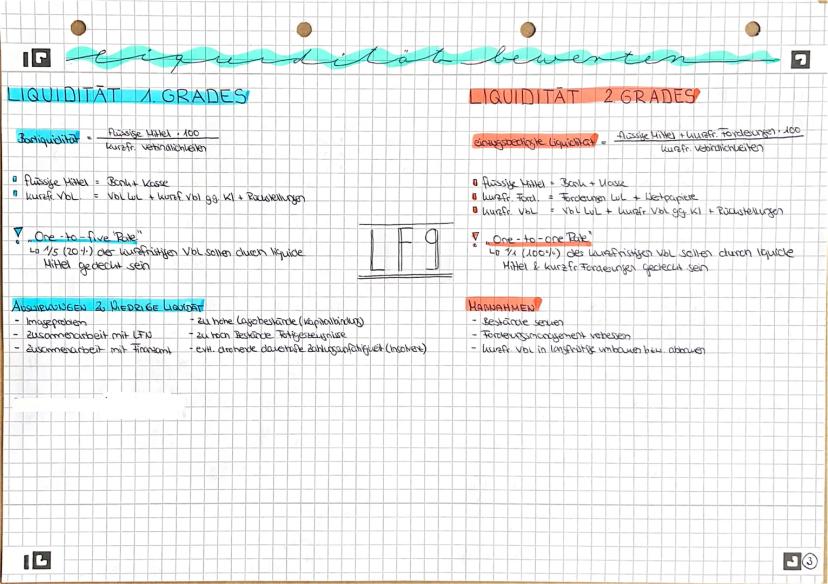 Liquidität bewerten
LIQUIDITÄT 1. GRADES
Barliquidität = flüssige Mittel · 100
kurzfr. Verbindlichkeiten
flüssige Mittel = Bank + Kasse
kurzfr. Vbl. = Vbl LuL + kurzf Vbl gg. KI + Rückstellungen
! "One-to-five Rate"
↳ 1/5 (20%) der kurzfristigen Vbl sollen durch liquide
Mittel gedeckt sein
AUSWIRKUNGEN ZU NIEDRIGE LIQUIDITÄT
- Imageproblem
- Zusammenarbeit mit LFN
- Zusammenarbeit mit Finanzamt
- zu hohe Lagerbestände (Kapitalbindung)
- zu hoh Bestände Fertigerzeugnisse
- evtl. drohende dauerhafte Zahlungsunfähigkeit (Insolvenz)
LF9
LIQUIDITÄT 2 GRADES
einzugsbedingte Liquidität = flüssige Mittel + kurzfr. Forderungen · 100
kurzfr. Verbindlichkeiten
flüssige Mittel = Bank + Kasse
kurzfr. Ford. = Forderungen LuL + Wertpapiere
kurzfr. Vbl. = Vbl LuL + kurzfr. Vbl gg. KI + Rückstellungen
! "One-to-one Rate"
↳ 1/1 (100%) des kurzfristigen Vbl sollen durch liquide
Mittel & kurzfr Forderungen gedeckt sein
MAßNAHMEN
- Bestände senken
- Forderungsmanagement verbessern
- kurzfr. Vbl in langfristige umbauen bzw. abbauen
3